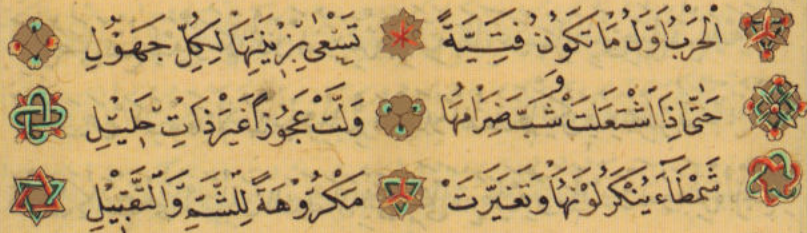 اَلْحَرْبُ اَوَّلُ مَا تَكُونُ فَتِيَّةً تَسْعٰى بِزِينَتِهَا لِكِلِّ جَهُولِ
حَتّٰى اِذَا اشْتَعَلَتْ وَ شَبَّ ضِرَامُهَا وَلَّتْ عَجُوزًا غَيْرَ ذَاتِ حَلِيلِ
شَمْطَآءَ يُنْكَرُ لَوْنُهَا وَتَغَيَّرَتْ مَكْرُوهَةً لِلشَّمِّ وَالتَّقْبِيْلِ